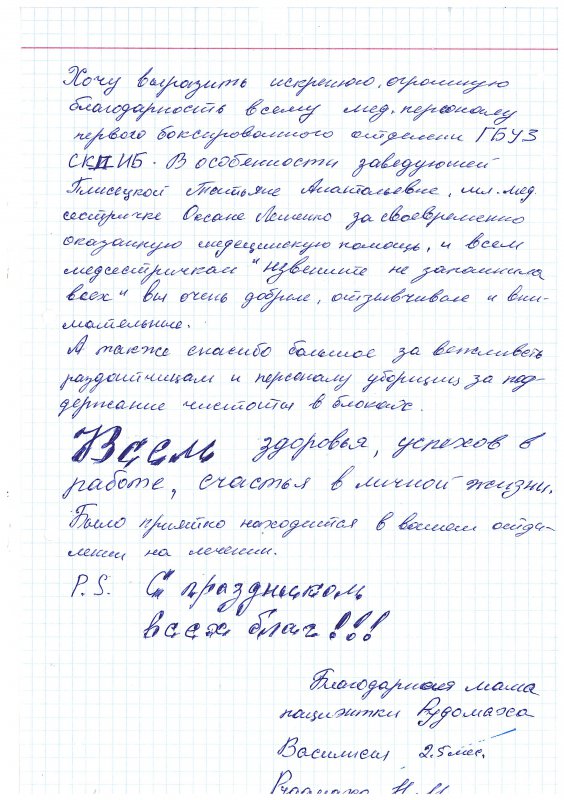 Хочу выразить искреннюю, огромную
благодарность всему мед. персоналу
первого боксированного отделении ГБУЗ
СКПИБ. В особенности заведующей
Плисецкой Татьяне Анатольевне, мл. мед.
сестричке Оксане за своевременно
оказанную медецинскую помощь, и всем
медсестричкам "извените не запомнила
всех" вы очень добрые, отзывчивые и вни-
мательные.
А также спасибо большое за вежливсть
раздатчицам и персоналу уборщиц за под-
держание чистоты в блоках.
Всем здоровья, успехов в
работе, счастья в личной жизни.
Было приятно находится в вашем отде-
лении на лечении.
P.S. С праздником
всех благ!!!
Благодарная мама
пациентки Рудомаха
Василисы 2.5 мес.